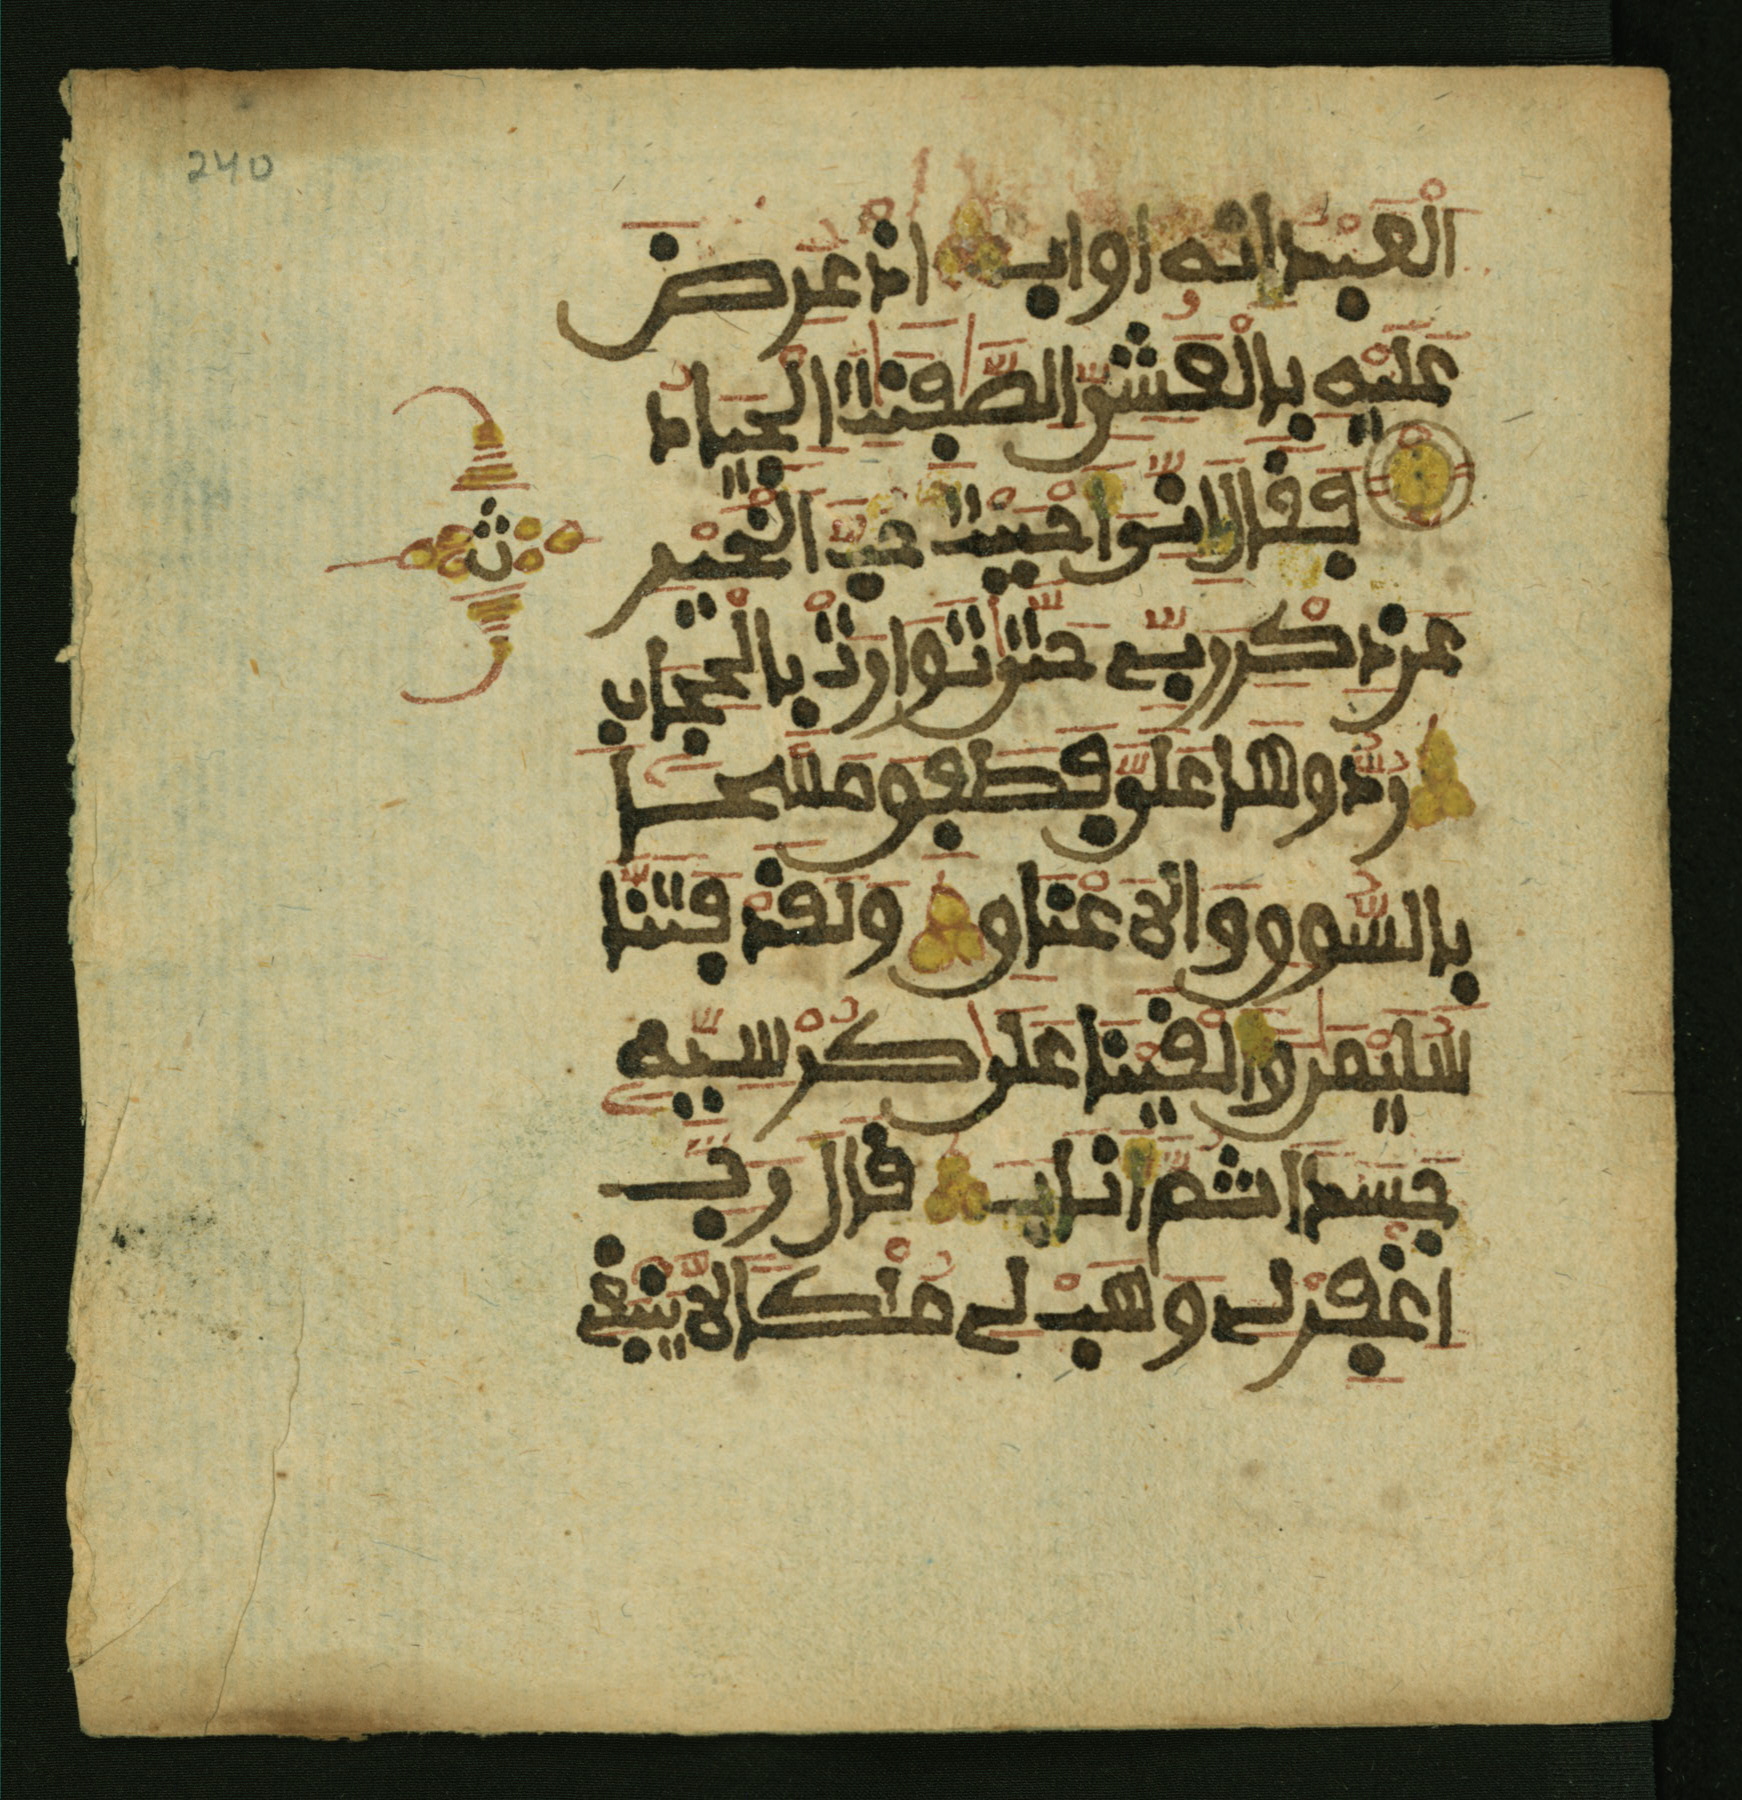 240
العبد انه اواب اذ عرض
عليه بالعشي الصفنت الجياد
فقال اني احببت حب الخير
عن ذكر ربي حتى توارت بالحجاب
ث
ردوها علي فطفق مسحا
بالسوق والاعناق ولقد فتنا
سليمن والقينا على كرسيه
جسدا ثم اناب قال رب
اغفر لي وهب لي ملكا لا ينبغي